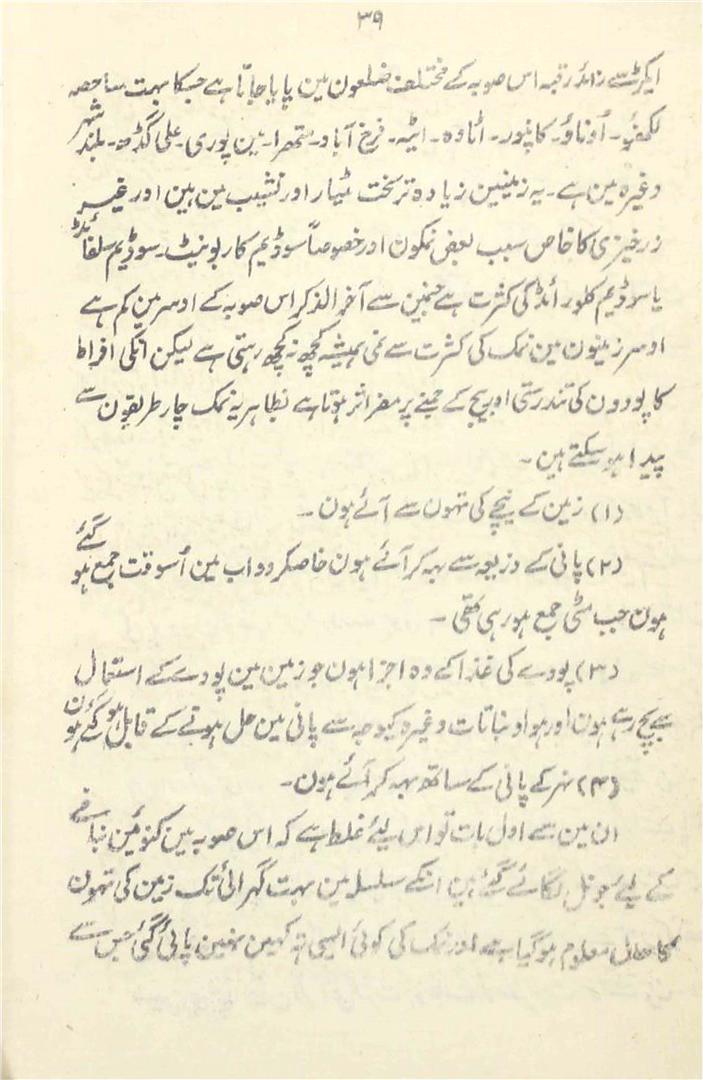 ۳۹
ایکڑ سے زائد رقبہ اس صوبہ کے مختلف ضلعون مین پایا جاتا ہے جسکا بہت سا حصہ
لکھنؤ۔ اُوناؤ۔ کانپور۔ اٹاوہ۔ ایٹہ۔ فرخ آباد۔ متھرا۔ مین پوری۔ علی گڈھ۔ بلند شہر
وغیرہ مین ہے۔ یہ زمینین زیادہ تر سخت مٹیار اور نشیب مین ہین اور غیر
زرخیزی کا خاص سبب بعض نمکون اور خصوصاً سوڈیم کاربونیٹ۔ سوڈیم سلفائڈ
یا سوڈیم کلورائڈ کی کثرت ہے جنمین سے آخر الذکر اس صوبہ کے اوسر مین کم ہے
اوسر زمینون مین نمک کی کثرت سے نمی ہمیشہ کچھ نہ کچھ رہتی ہے لیکن انکی افراط
کا پودون کی تندرستی اور بیج کے جمنے پر مضر اثر ہوتا ہے بظاہر یہ نمک چار طریقون سے
پیدا ہو سکتے ہین۔
(۱) زمین کے نیچے کی تہون سے آئے ہون۔
(۲) پانی کے ذریعہ سے بہہ کر آئے ہون خاصکر دوآب مین اُسوقت جمع ہو گئے
ہون جب مٹی جمع ہو رہی تھی۔
(۳) پودے کی غذا کے وہ اجزا ہون جو زمین مین پودے کے استعمال
سے بچ رہے ہون اور ہوا و نباتات وغیرہ کیوجہ سے پانی مین حل ہونے کے قابل ہو گئے ہون
(۴) نہر کے پانی کے ساتھ بہہ کر آئے ہون۔
ان مین سے اول بات تو اس لیٔے غلط ہے کہ اس صوبہ مین کنوئین بنانے
کے لیے جو نل لگائے گئے ہین انکے سلسلہ مین بہت گہرائی تک زمین کی تہون
کا حال معلوم ہو گیا ہے اور نمک کی کوئی ایسی تہ کہین نہین پائی گئی جس سے